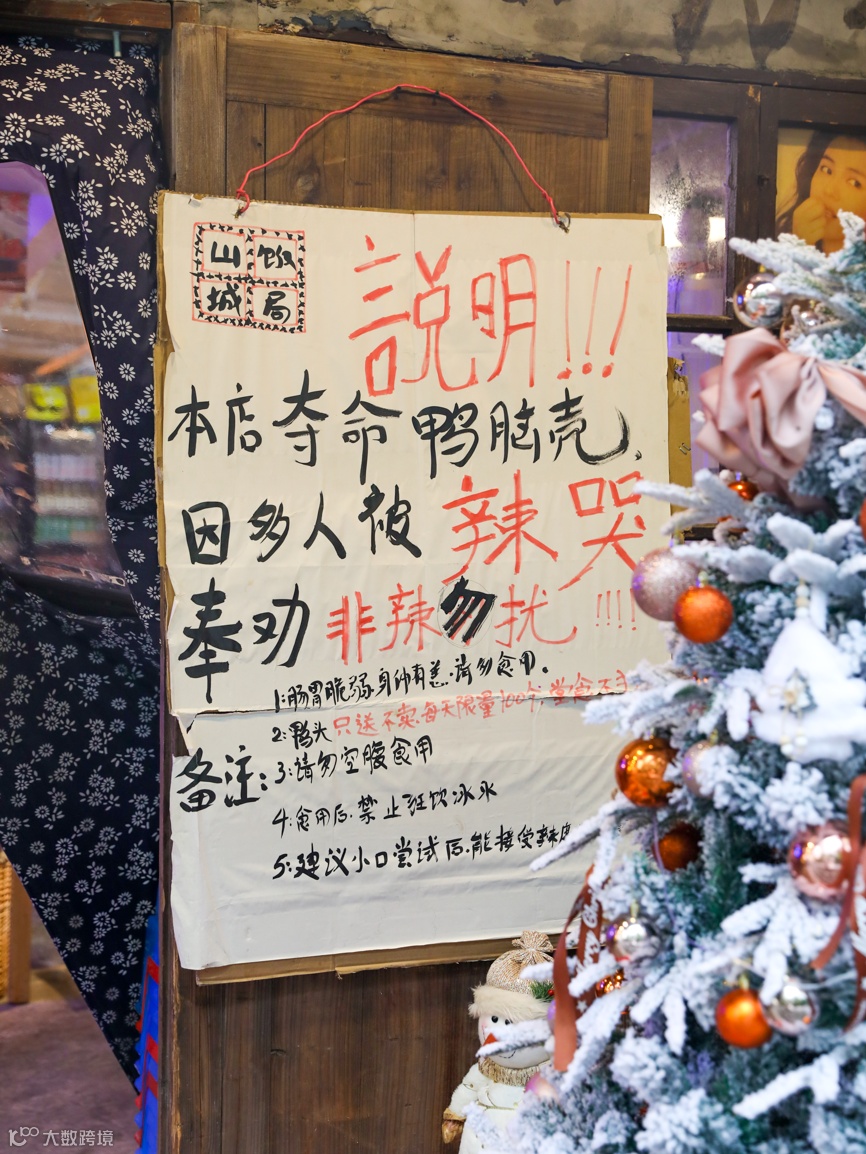 山饭
城局
説明!!!
本店夺命鸭脑壳,
因多人被辣哭
奉劝非辣勿扰!!!!
备注:
1:肠胃脆弱,身体有恙,请勿食用。
2:鸭头只送不卖,每天限量100个,堂食
3:请勿空腹食用
4:食用后,禁止狂饮冰水
5:建议小口尝试后,能接受辣度
大数跨境